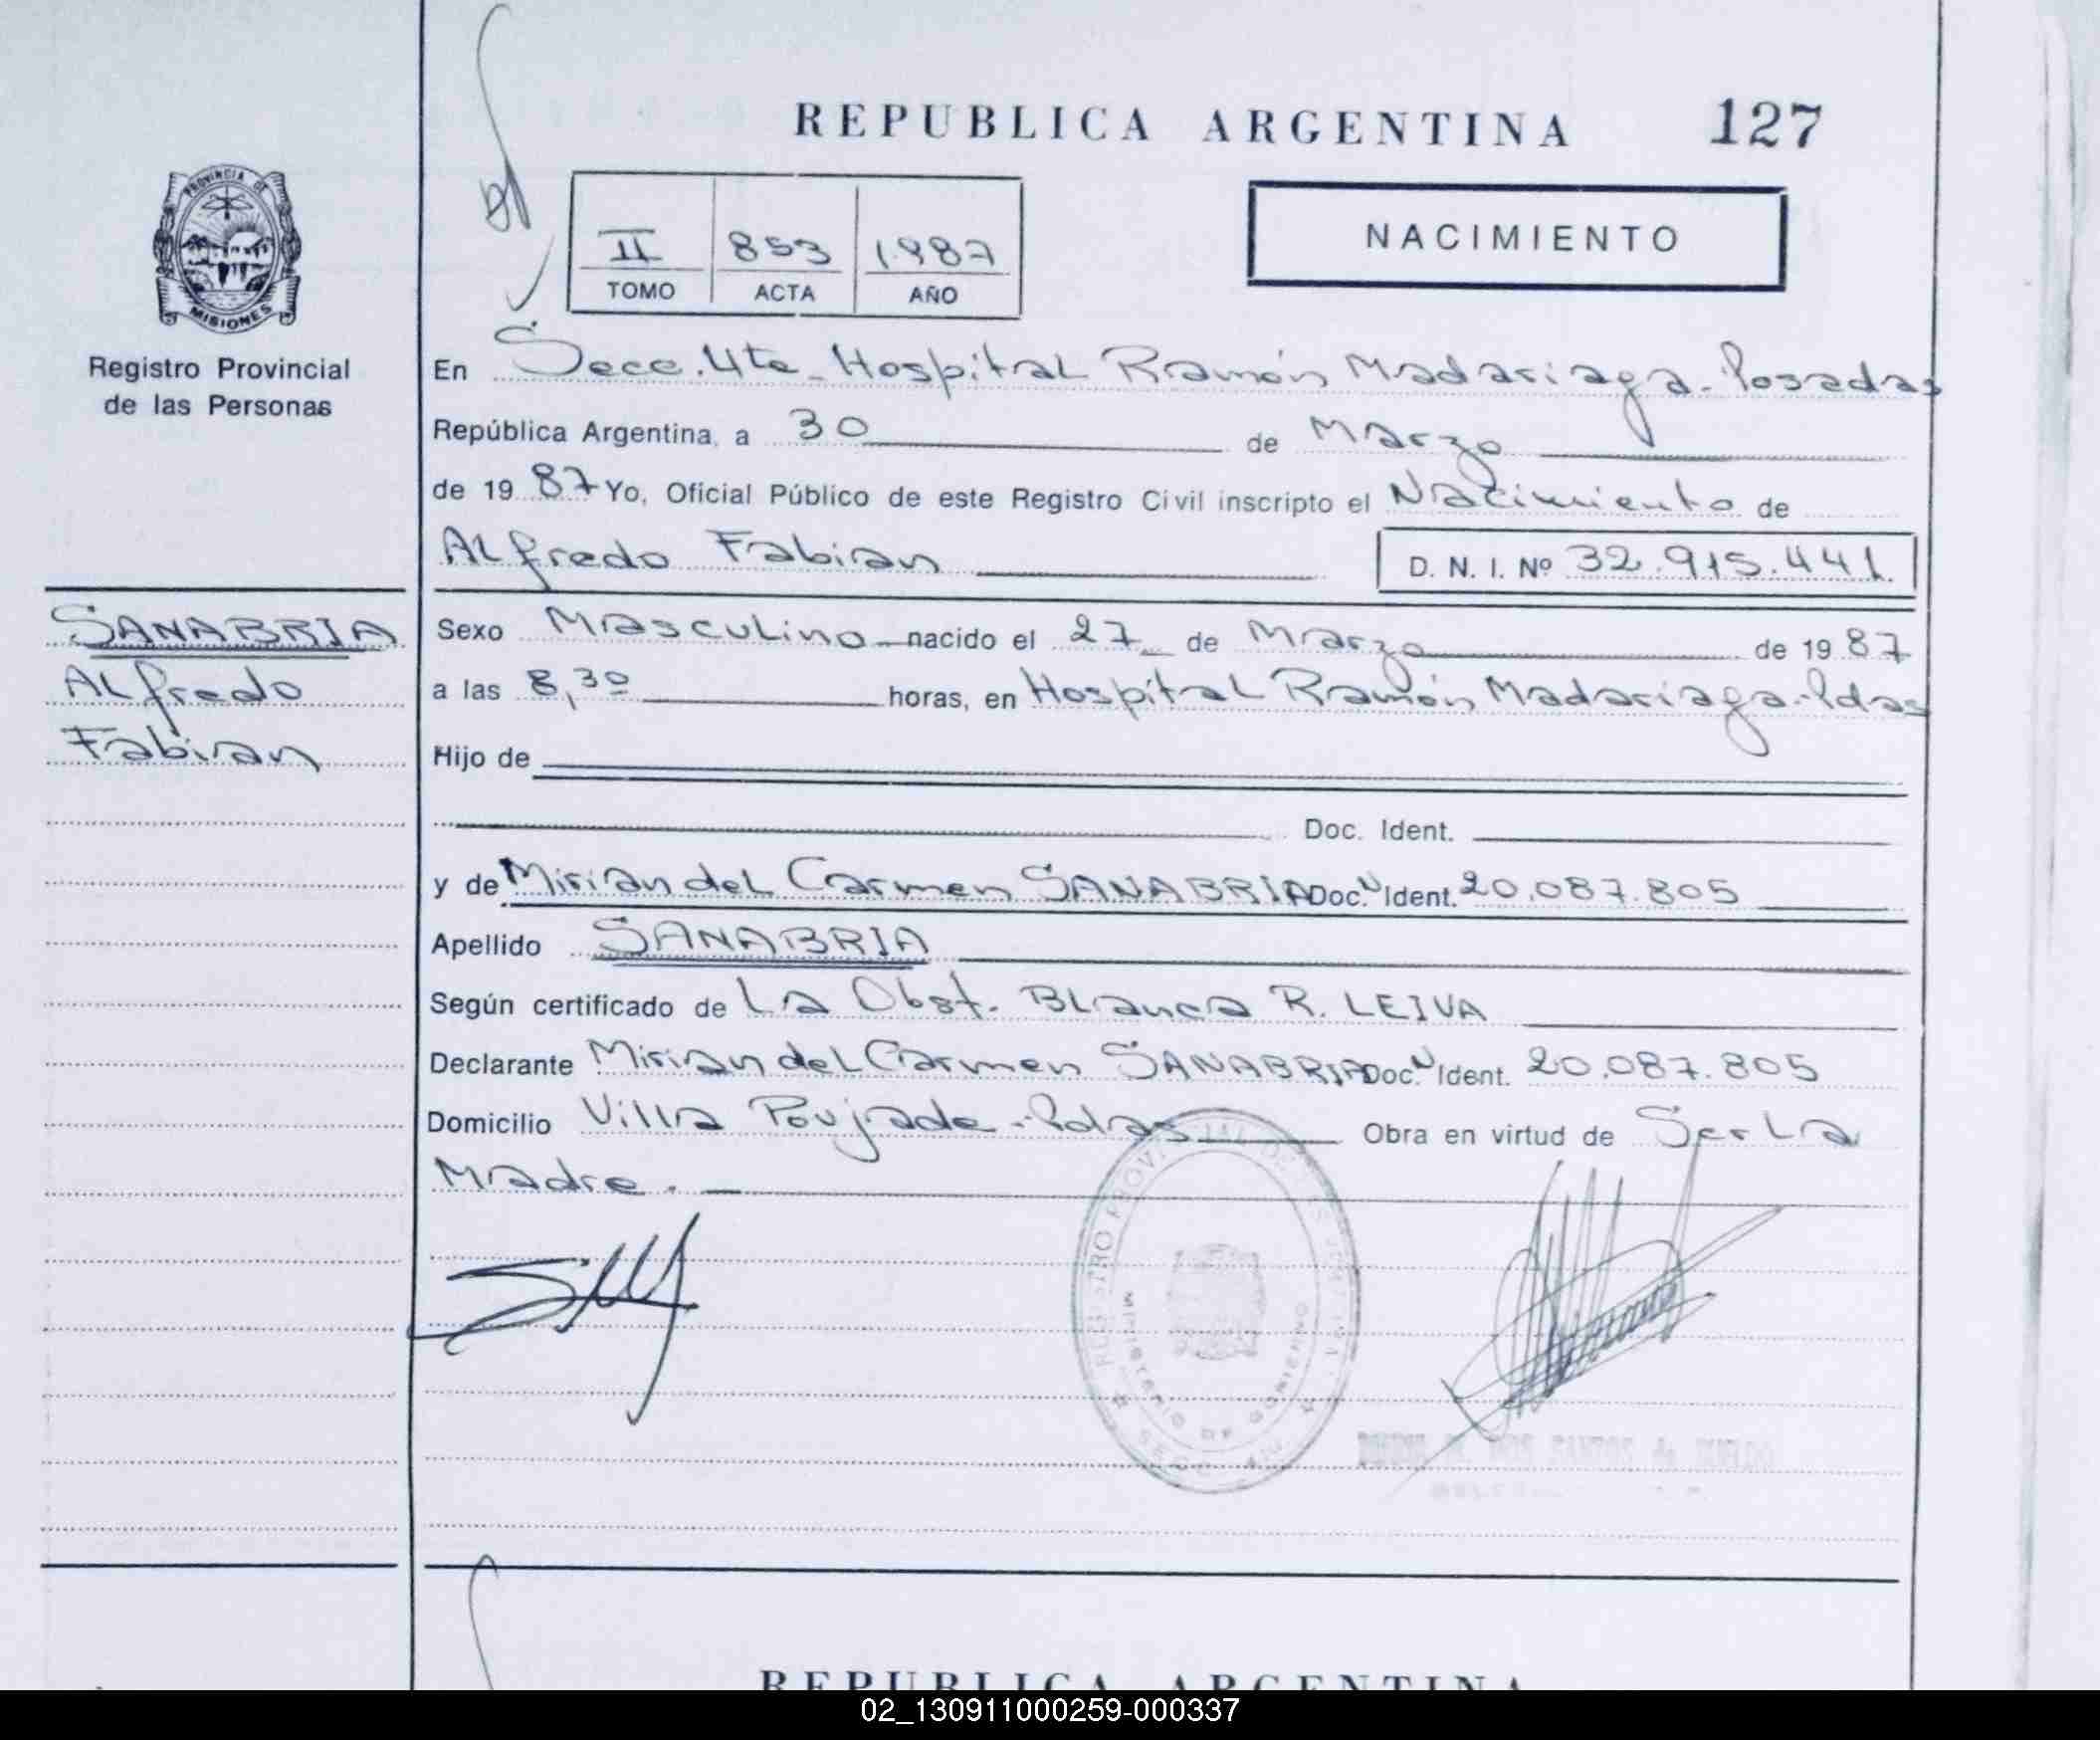 REPUBLICA ARGENTINA 127
PROVINCIA DE
MISIONES
Registro Provincial
de las Personas
II 853 1.987
TOMO ACTA AÑO
NACIMIENTO
En Secc. 4ta - Hospital Ramón Madariaga - Posadas
República Argentina, a 30 de Marzo
de 1987 Yo, Oficial Público de este Registro Civil inscripto el Nacimiento de
Alfredo Fabian D. N. I. Nº 32.915.441
SANABRIA
Alfredo
Fabian
Sexo Masculino nacido el 27 de Marzo de 1987
a las 8,30 horas, en Hospital Ramón Madariaga - Pdas
Hijo de
Doc. Ident.
y de Mirian del Carmen SANABRIA Doc. Ident. 20.087.805
Apellido SANABRIA
Según certificado de La Obst. Blanca R. LEIVA
Declarante Mirian del Carmen SANABRIA Doc. Ident. 20.087.805
Domicilio Villa Poujade - Pdas Obra en virtud de Ser La
Madre.
REGISTRO PROVINCIAL DE LAS PERSONAS
MINISTERIO DE GOBIERNO
SECC. 4ta
REPUBLICA ARGENTINA
02_130911000259-000337